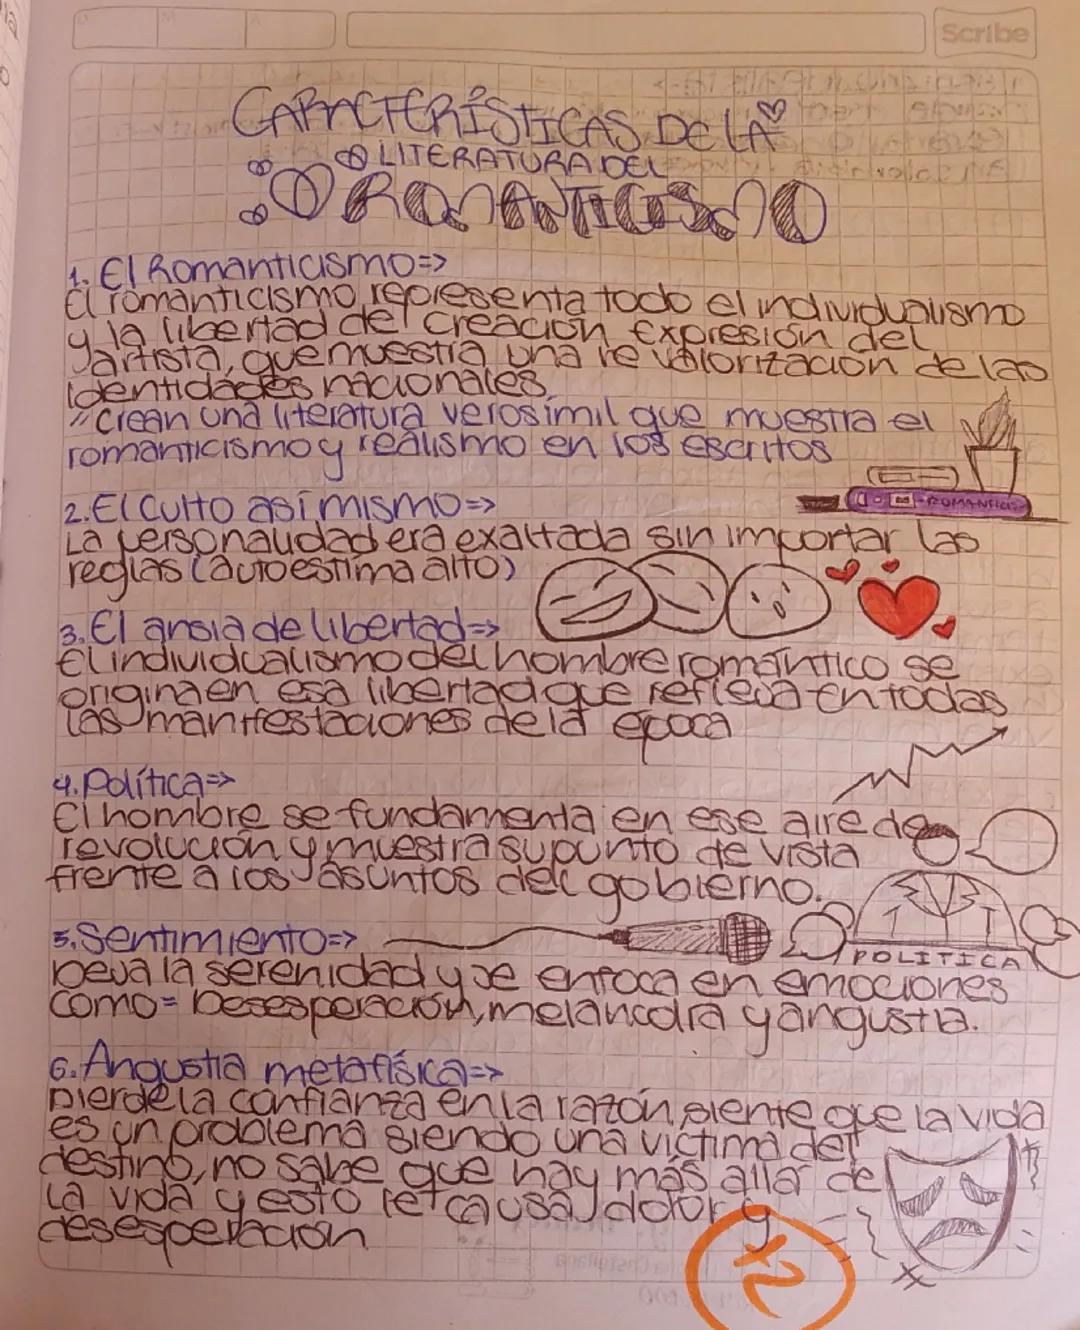 Scribe
CARACTERÍSTICAS DE LA
LITERATURA DEL
ROMANTICISMO
1. El Romanticismo=>
El romanticismo representa todo el individualismo
y la libertad de creación, expresión del
artista, que muestra una revalorización de las
identidades nacionales.
"Crean una literatura verosímil que muestra el
romanticismo y realismo en los escritos
ROMANTICIS
2. El culto asímismo=>
La personalidad era exaltada sin importar las
reglas (autoestima alto)
3. El ansia de libertad=>
El individualismo del hombre romántico se
origina en esa libertad que refleja en todas
las manifestaciones de la época
4. Política=>
El hombre se fundamenta en ese aire de
revolución y muestra su punto de vista
frente a los asuntos del gobierno.
POLITICA
5. Sentimiento=>
Deja la serenidad y se enfoca en emociones
como= Desesperación, melancolía y angustia.
6. Angustia metafísica=>
Pierde la confianza en la razón, siente que la vida
es un problema siendo una víctima del
destino, no sabe que hay más allá de
la vida y esto le causa dolor y
desesperación